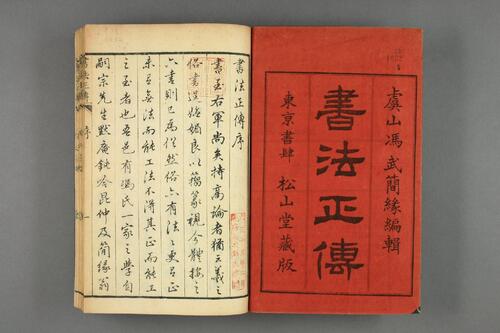 虞山馮武簡緣編輯
書法正傳
東京書肆　松山堂藏版
書法正傳序
書至右軍尚矣持高論者猶云羲之
俗書趁姿媚良以籀篆視今體按之
六書則已為俗然俗亦有法之
未有無法而能工法不得其正而能工
之至者也吾邑有馮氏一家之學自
嗣宗先生默庵鈍吟昆仲及簡緣翁
書法正傳
序